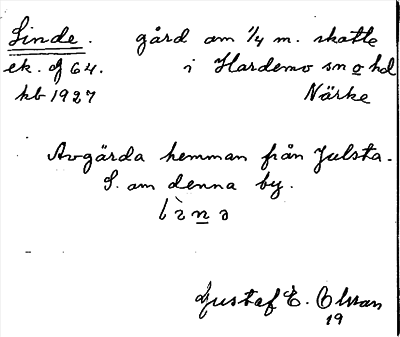 Linde. gård om 1/4 m. skatte
ek. af 64. i Hardemo sn o hd
kb 1927 Närke
Avgärda hemman från Julsta.
S. om denna by.
Gustaf E. Olsson
19